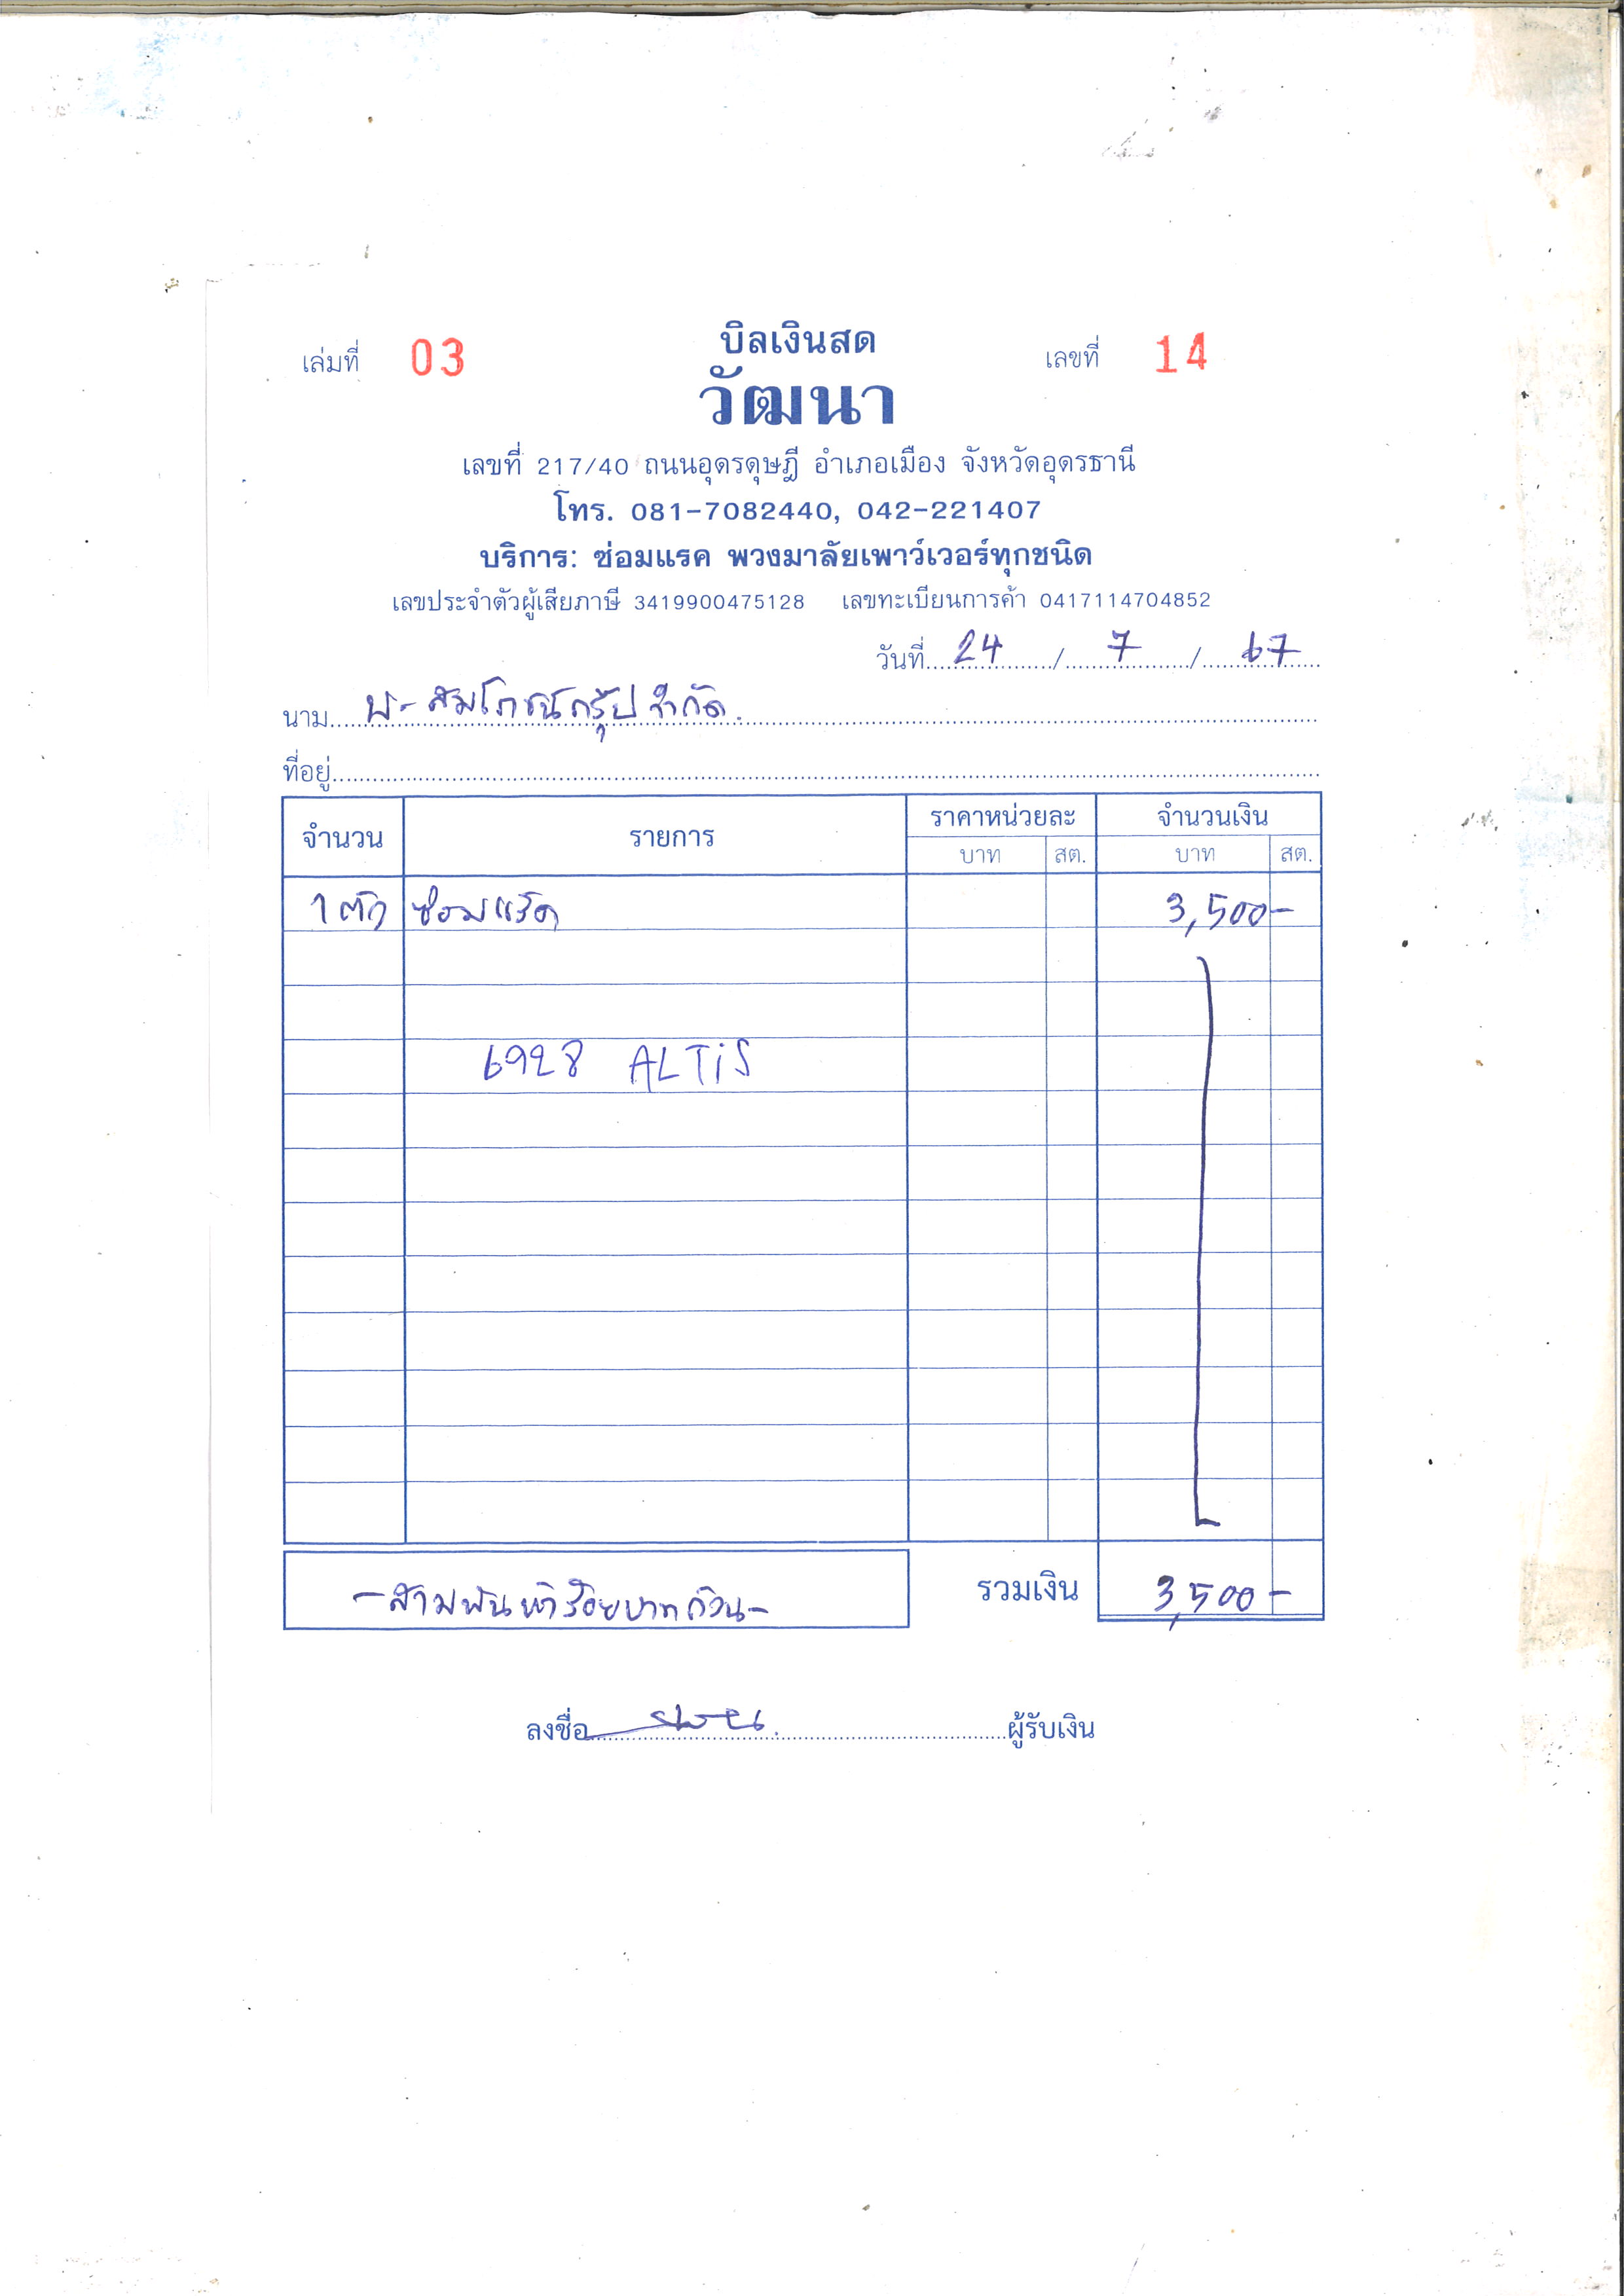 บิลเงินสด
เล่มที่ 03 เลขที่ 14
วัฒนา
เลขที่ 217/40 ถนนอุดรดุษฎี อำเภอเมือง จังหวัดอุดรธานี
โทร. 081-7082440, 042-221407
บริการ: ซ่อมแรค พวงมาลัยเพาว์เวอร์ทุกชนิด
เลขประจำตัวผู้เสียภาษี 3419900475128 เลขทะเบียนการค้า 0417114704852
วันที่ 24 / 7 / 67
นาม บ- สัมโภชน์กรุ๊ป จำกัด.
ที่อยู่
จำนวน รายการ ราคาหน่วยละ จำนวนเงิน
บาท สต. บาท สต.
1 ตัว ซ่อมแร็ค 3,500-
6928 ALTiS
-สามพันห้าร้อยบาทถ้วน- รวมเงิน 3,500-
ลงชื่อ ผู้รับเงิน